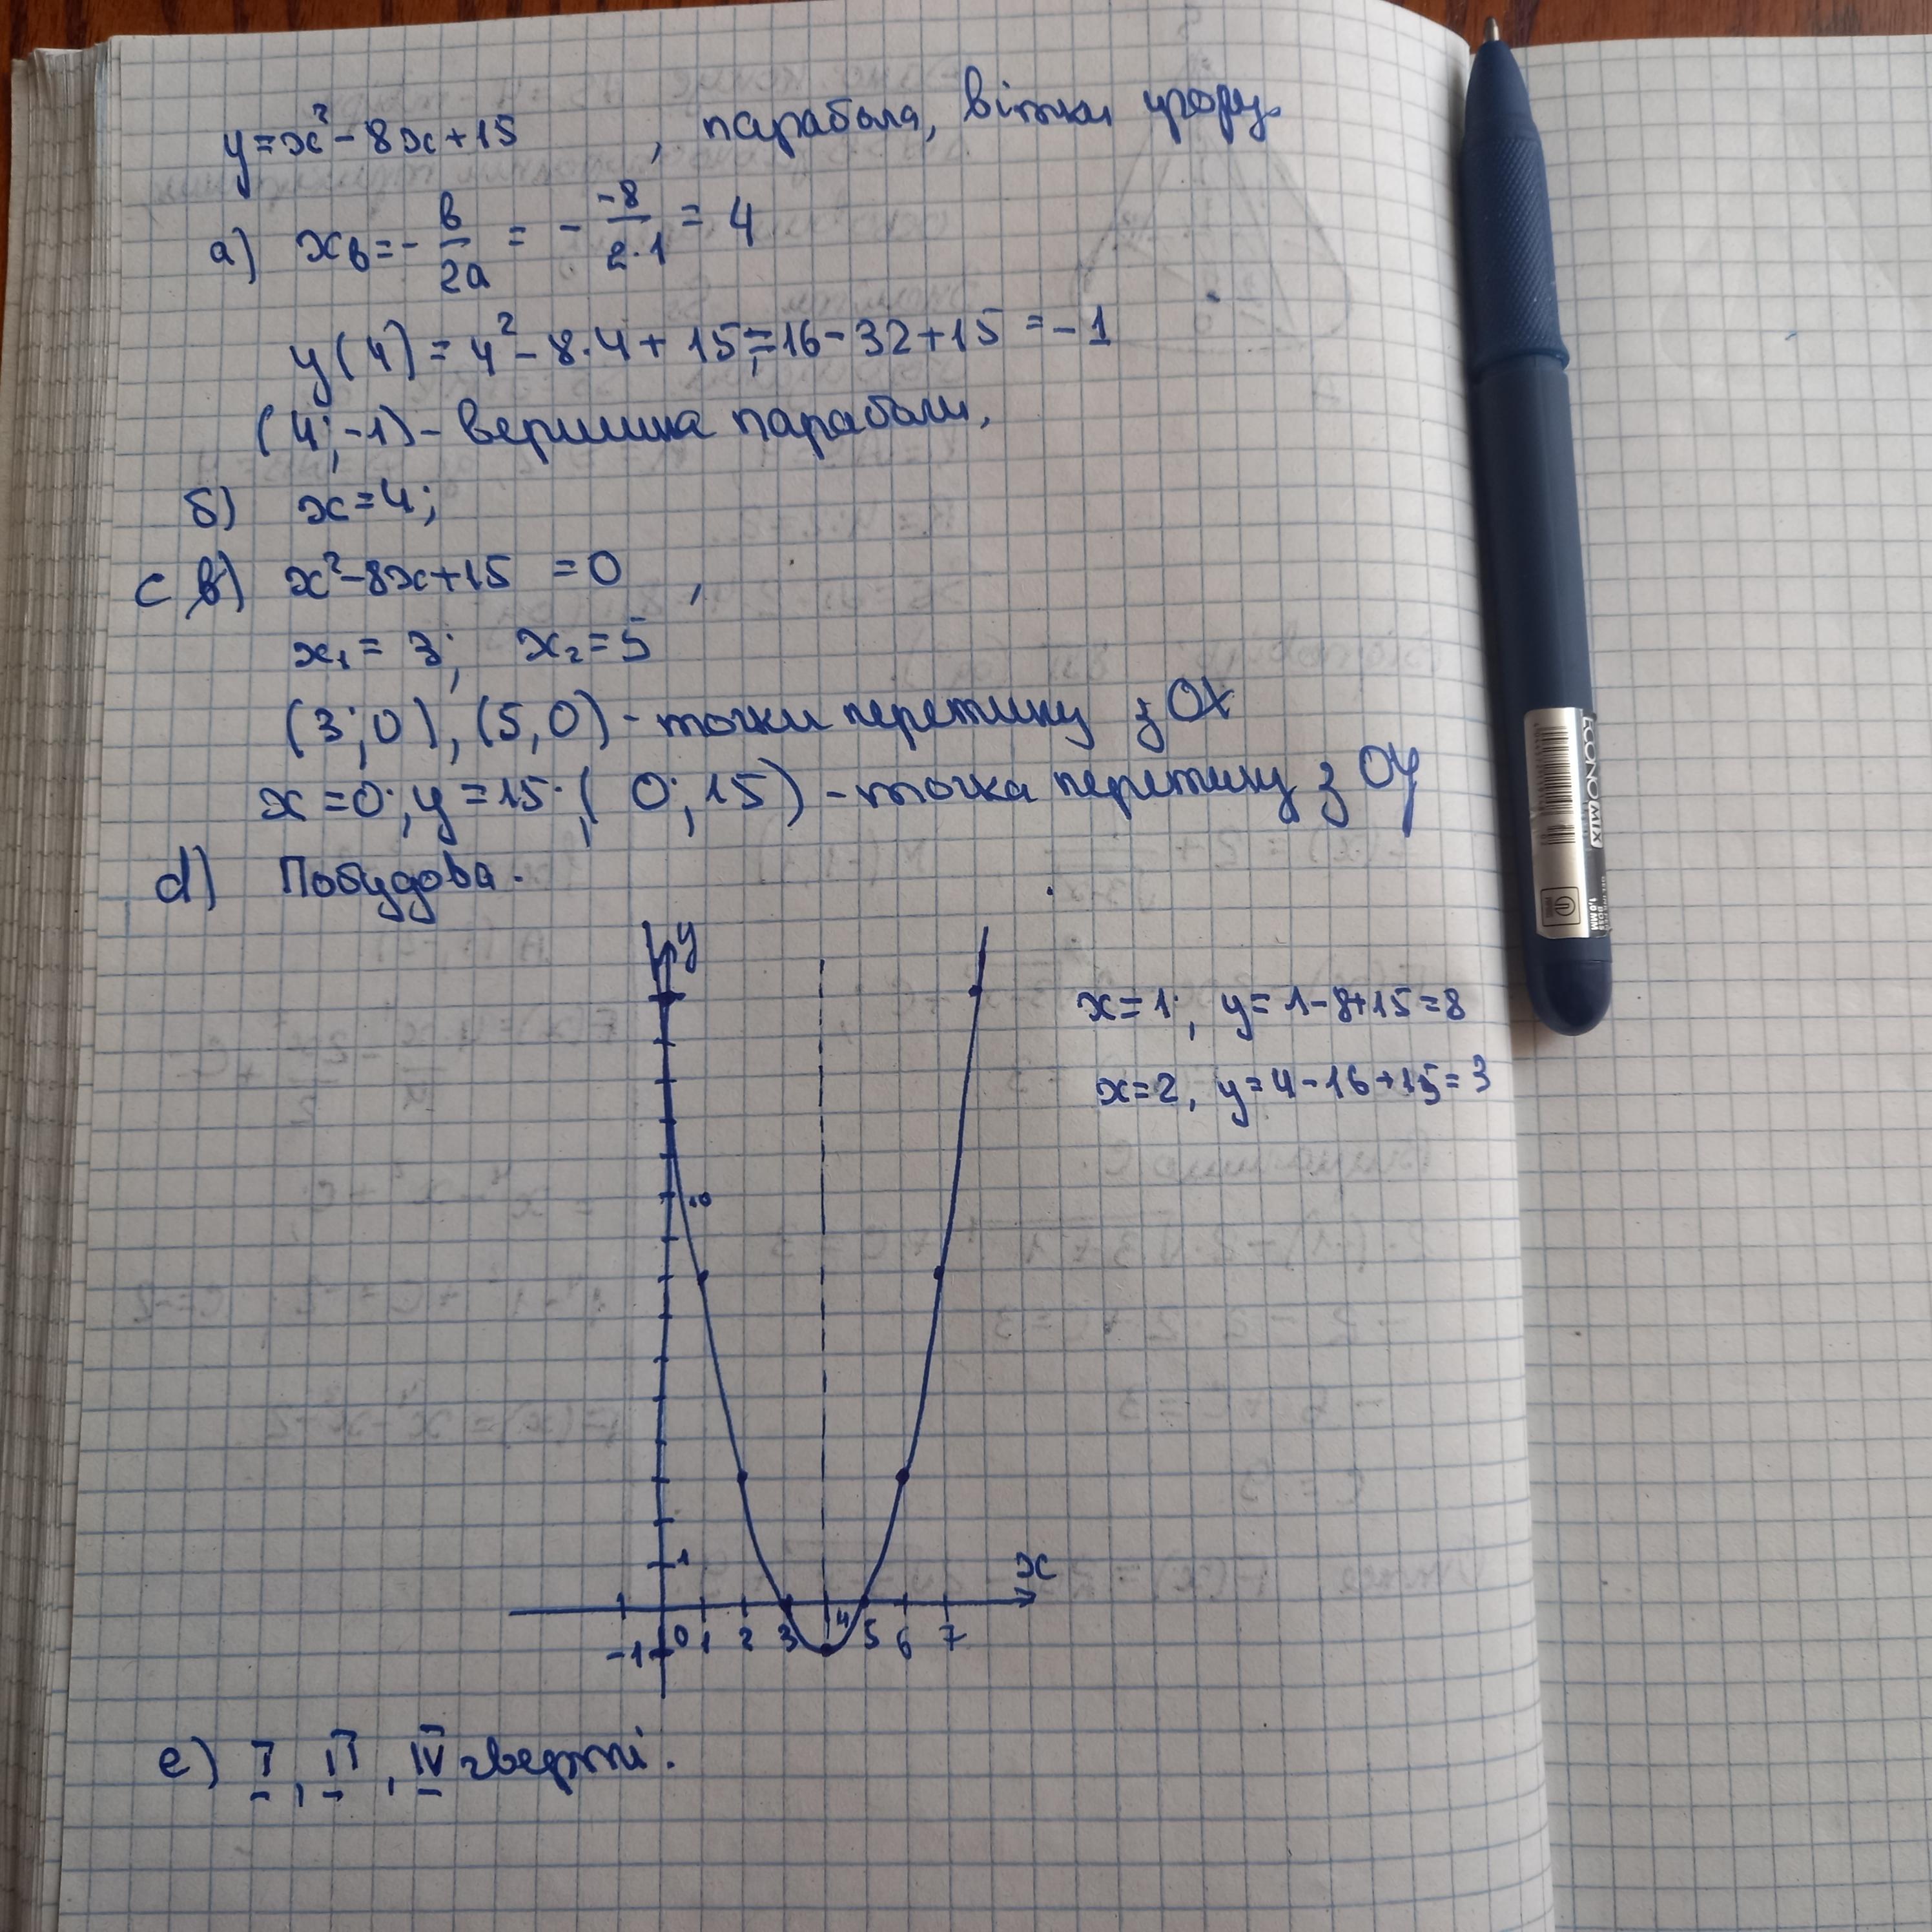 y=x²-8x+15 , парабола, вітки угору.
a) xв=-в/2a = - -8/2·1 = 4
y(4)=4²-8·4+15=16-32+15=-1
(4;-1)-вершина параболи,
б) x=4;
c в) x²-8x+15=0,
x₁=3; x₂=5
(3;0),(5,0)-точки перетину з OX
x=0;y=15;(0;15)-точка перетину з OY
d) Побудова.
y
x=1; y=1-8+15=8
x=2, y=4-16+15=3
10
1
x
0 1 2 3 4 5 6 7
-1
e) I, II, IV чверті.
ECONOMIX